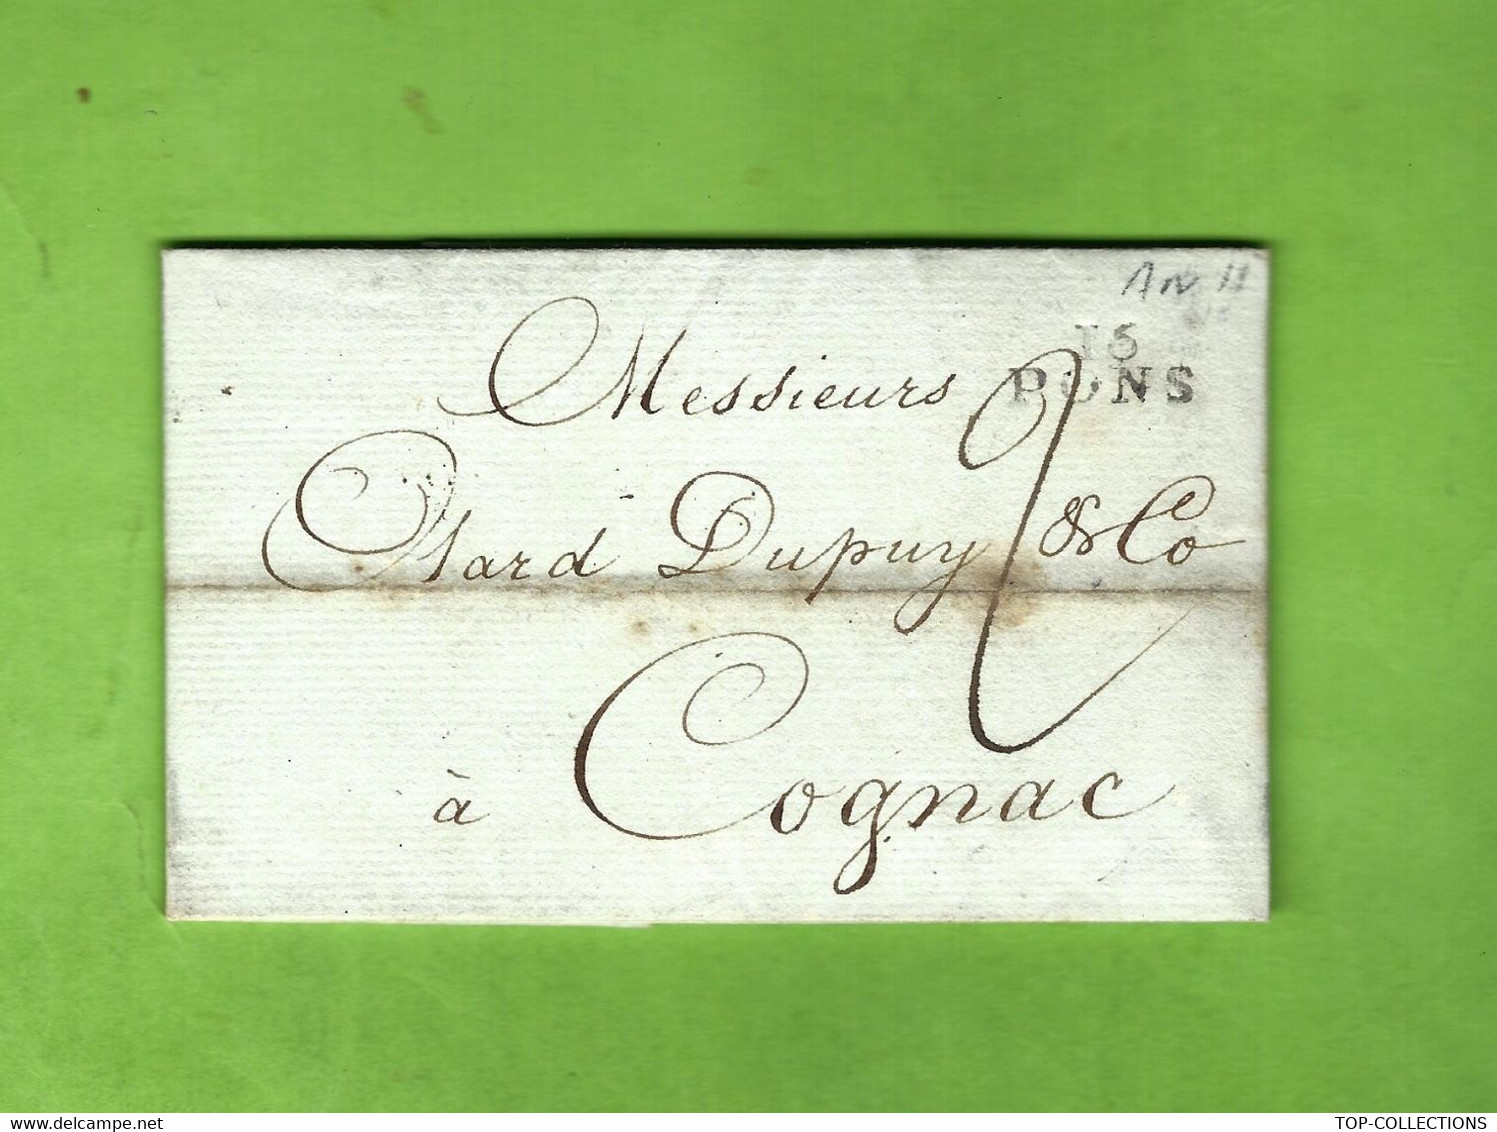 An 11
16
PONS
Messieurs
Otard Dupuy & Co
2
à Cognac
TOP-COLLECTIONS